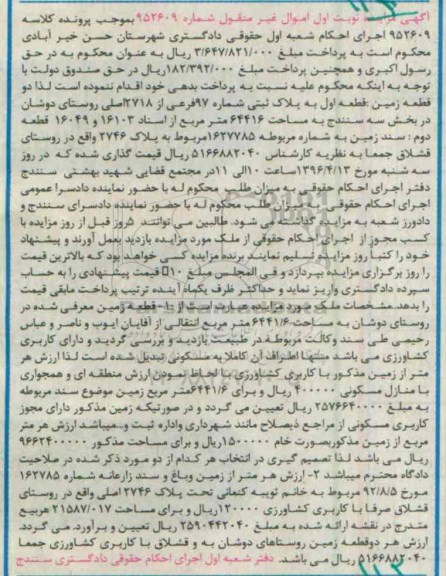 آگهی مزایده نوبت اول اموال غیر منقول شماره ۹۵۲۶۰۹ بموجب پرونده کلاسه
۹۵۲۶۰۹ اجرای احکام شعبه اول حقوقی دادگستری شهرستان حسن خیر آبادی
محکوم است به پرداخت مبلغ ۳/۶۴۷/۸۲۱/۰۰۰ ریال به عنوان محکوم به در حق
رسول اکبری و همچنین پرداخت مبلغ ۱۸۲/۳۹۲/۰۰۰ریال در حق صندوق دولت با
توجه به اینکه محکوم علیه نسبت به پرداخت بدهی خود اقدام ننموده است لذا دو
قطعه زمین :قطعه اول به پلاک ثبتی شماره ۹۷فرعی از ۲۷۱۸اصلی روستای دوشان
در بخش سه سنندج به مساحت ۶۴۴۱۶ متر مربع از اسناد ۱۶۱۰۳ و ۱۶۰۴۹ قطعه
دوم : سند زمین به شماره مربوطه ۱۶۲۷۷۸۵مربوط به پلاک ۲۷۴۶ واقع در روستای
قشلاق جمعا به نظریه کارشناس ۵۱۶۶۸۸۲۰۴۰ ریال قیمت گذاری شده که در روز
سه شنبه مورخ ۱۳۹۶/۴/۱۳ساعت ۱۰الی ۱۱در مجتمع قضایی شهید بهشتی سنندج
دفتر اجرای احکام حقوقی به میزان طلب محکوم له با حضور نماینده دادسرا عمومی
اجرای احکام حقوقی به میزان طلب محکوم له با حضور نماینده دادسرای سنندج و
دادورز شعبه به مزایده گذاشته می شود. طالبین می توانند ۵روز قبل از روز مزایده با
کسب مجوز از اجرای احکام حقوقی از ملک مورد مزایده بازدید بعمل آورند و پیشنهاد
خود را کتبا روز مزایده تسلیم نمایند برنده مزایده کسی خواهد بود که بالاترین قیمت
را روز برگزاری مزایده بپردازد و فی المجلس مبلغ ۱۰ قیمت پیشنهادی را به حساب
سپرده دادگستری واریز نماید و حداکثر ظرف یکماه آینده ترتیب پرداخت مابقی قیمت
را بدهد.مشخصات ملک مورد مزایده عبارت است از ۱- قطعه زمین معرفی شده در
روستای دوشان به مساحت ۶۴۴۱/۶متر مربع انتقالی از آقایان ایوب و ناصر و عباس
رحیمی طی سند وکالت مربوطه در طبیعت بازدید و بررسی گردید و دارای کاربری
کشاورزی می باشد منتها اطراف آن کاملا به مسکونی تبدیل شده است لذا ارزش هر
متر از زمین مذکور با کاربری کشاورزی با لحاظ نمودن ارزش منطقه ای و همجواری
با منازل مسکونی ۴۰۰۰۰۰ ریال و برای ۶۴۴۱/۶متر مربع زمین موضوع سند مربوطه
به مبلغ ۲۵۷۶۶۴۰۰۰۰ ریال تعیین می گردد و در صورتیکه زمین مذکور دارای مجوز
کاربری مسکونی از مراجع ذیصلاح مانند شهرداری واداره ثبت و..میباشد ارزش هر متر
مربع از زمین مذکوربصورت خام ۱۵۰۰۰۰۰ریال و برای مساحت مذکور ۹۶۶۲۴۰۰۰۰۰
ریال می باشد لذا تصمیم گیری در انتخاب هر کدام از دو مورد ذکر شده در صلاحیت
دادگاه محترم میباشد ۲- ارزش هر متر از زمین وباغ و سند زارعانه شماره ۱۶۲۷۸۵
مورخ ۹۲/۸/۵ مربوط به خانم ثویبه کنعانی تحت پلاک ۲۷۴۶ اصلی واقع در روستای
قشلاق صرفا با کاربری کشاورزی ۱۲۰۰۰۰ریال و برای مساحت ۲۱۵۸۷/۰۱۷ مترمربع
مندرج در نقشه ارائه شده به مبلغ ۲۵۹۰۴۴۲۰۴۰ ریال تعیین و برآورد. می گردد.
ارزش هر دوقطعه زمین روستاهای دوشان به و قشلاق با کاربری کشاورزی جمعا
۵۱۶۶۸۸۲۰۴۰ ریال می باشد. دفتر شعبه اول اجرای احکام حقوقی دادگستری سنندج